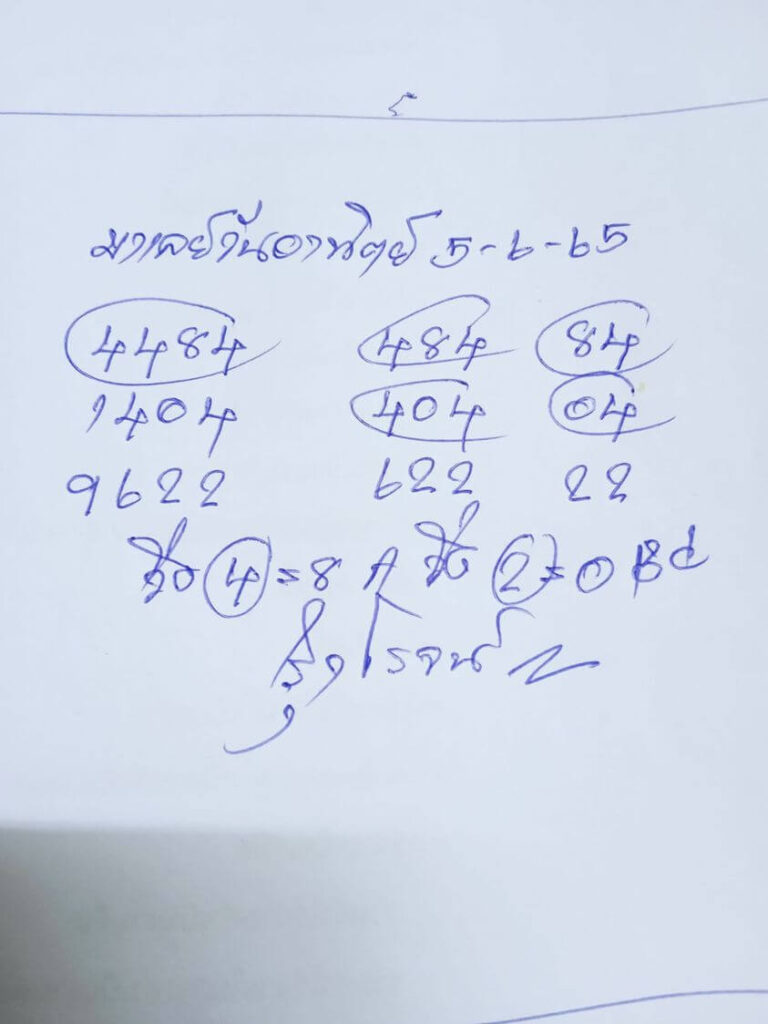 มาเลย์วันอาทิตย์ 5-6-65
4484 484 84
1404 404 04
9622 622 22
4=8 2=0
รุ่งโรจน์